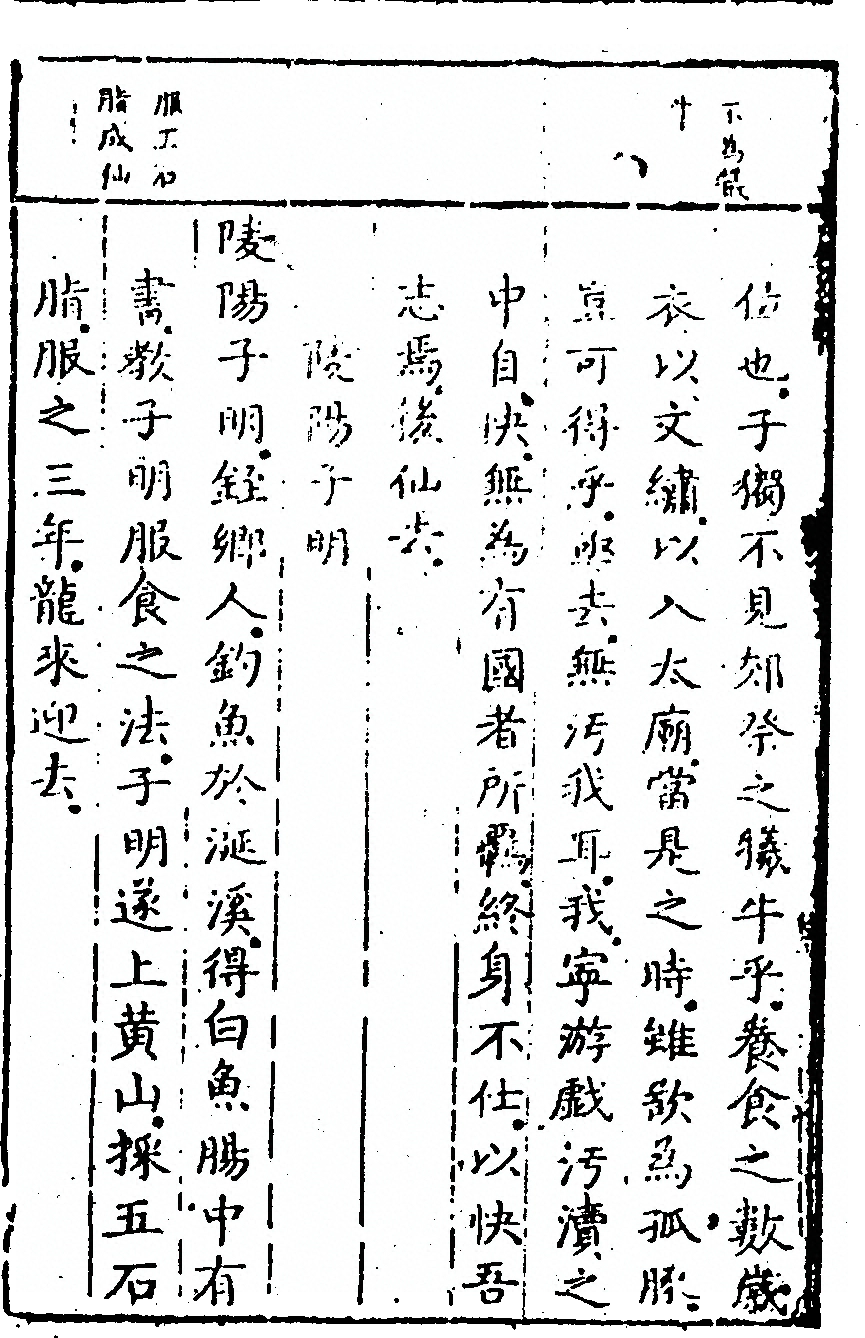 位也。子獨不見郊祭之犧牛乎。養食之數歲。
衣以文繡。以入太廟。當是之時。雖欲為孤豚。
豈可得乎。亟去。無汚我耳。我寧游戲汚瀆之
中自快。無為有國者所羈。終身不仕。以快吾
志焉。後仙去。
陵陽子明
陵陽子明。銍鄉人。釣魚於涎溪。得白魚腸中有
書。教子明服食之法。子明遂上黃山。採五石
脂。服之三年。龍來迎去。
服五石
脂成仙